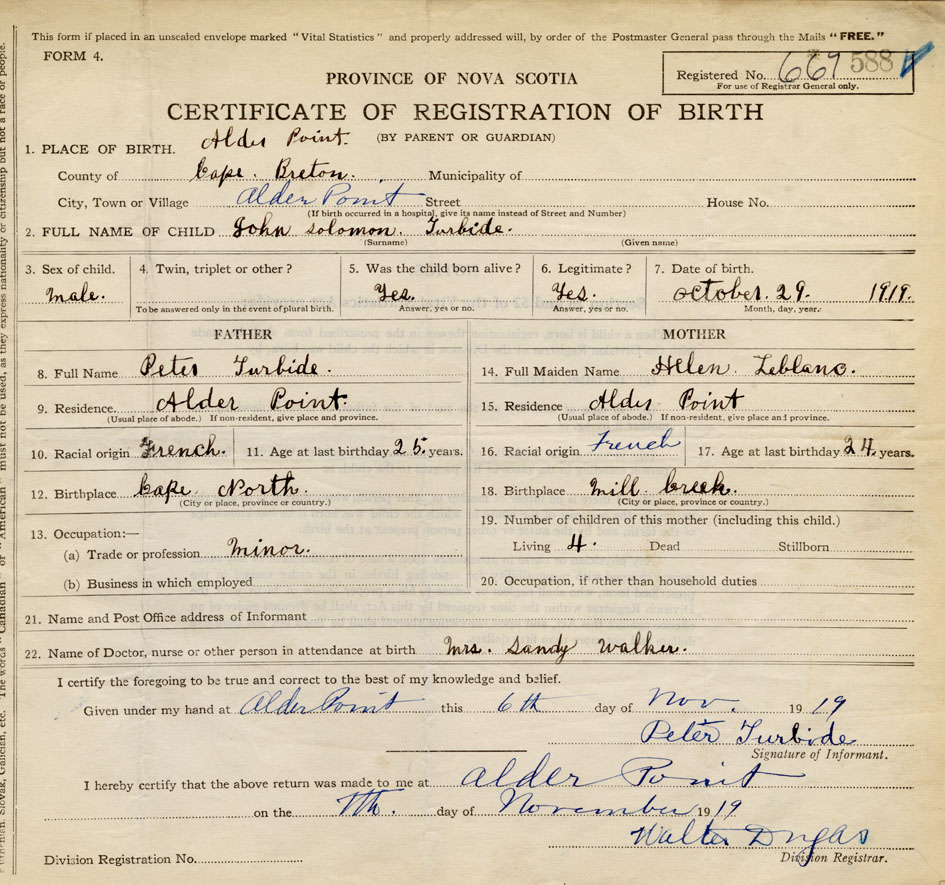 This form if placed in an unsealed envelope marked "Vital Statistics" and properly addressed will, by order of the Postmaster General pass through the Mails "FREE."
FORM 4.
Registered No. 667 588
For use of Registrar General only.
PROVINCE OF NOVA SCOTIA
CERTIFICATE OF REGISTRATION OF BIRTH
(BY PARENT OR GUARDIAN)
1. PLACE OF BIRTH. Alder Point.
County of Cape. Breton. Municipality of
City, Town or Village Alder Point Street House No.
(If birth occurred in a hospital, give its name instead of Street and Number)
2. FULL NAME OF CHILD John Solomon. Turbide.
(Surname) (Given name)
3. Sex of child. 4. Twin, triplet or other? 5. Was the child born alive? 6. Legitimate? 7. Date of birth.
Male. Yes. Yes. October. 29. 1919.
To be answered only in the event of plural birth. Answer, yes or no. Answer, yes or no. Month, day, year.
FATHER MOTHER
8. Full Name Peter Turbide. 14. Full Maiden Name Helen Leblanc.
9. Residence. Alder Point. 15. Residence Alder Point
(Usual place of abode.) If non-resident, give place and province. (Usual place of abode.) If non-resident, give place and province.
10. Racial origin French. 11. Age at last birthday 25. years. 16. Racial origin French 17. Age at last birthday 24. years.
12. Birthplace Cape North. 18. Birthplace Mill Creek.
(City or place, province or country.) (City or place, province or country.)
13. Occupation:— 19. Number of children of this mother (including this child.)
(a) Trade or profession Minor. Living 4. Dead Stillborn
(b) Business in which employed 20. Occupation, if other than household duties
21. Name and Post Office address of Informant
22. Name of Doctor, nurse or other person in attendance at birth Mrs. Sandy Walker.
I certify the foregoing to be true and correct to the best of my knowledge and belief.
Given under my hand at Alder Point this 6th day of Nov. 1919
Peter Turbide
Signature of Informant.
I hereby certify that the above return was made to me at Alder Point
on the 7th. day of November 1919
Walter Dugas
Division Registrar.
Division Registration No.